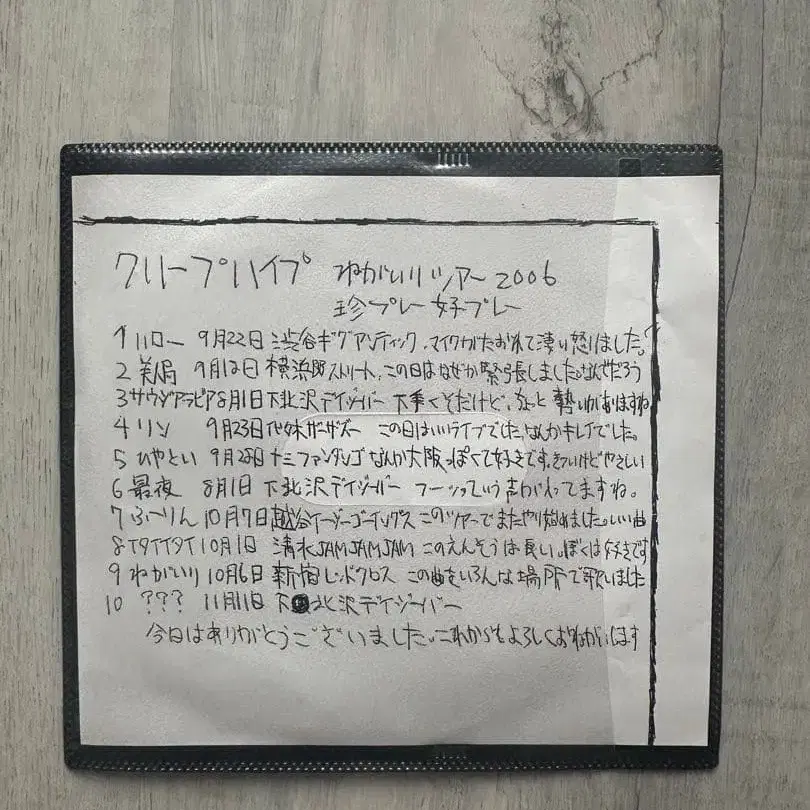 クリープハイプ ねがいり ツアー 2006
珍プレー 好プレー
1 ハロー 9月22日 渋谷ギグアンティック、マイクがたおれて凄い怒りました。
2 美局 9月12日 横浜野ストリート、この日はなぜか緊張しました。なんでだろう
3 サウジアラビア 8月1日 下北沢デイジーバー 下手くそだけど、ちょっと勢いがありますね
4 リン 9月23日 代々木ザーザズー この日はいいライブでした。なんかキレイでした。
5 ひやとい 9月28日 十三ファンダンゴ なんか大阪っぽくて好きです。きついけどやさしい
6 最夜 8月1日 下北沢デイジーバー フーッっていう声が入ってますね。
7 ふーりん 10月7日 越谷イージーゴーイングス このツアーでまたやり始めました。いい曲
8 イタイイタイ 10月1日 清水JAMJAMJAM このえんそうは長い。ぼくは好きです
9 ねがいり 10月6日 新宿レッドクロス この曲をいろんな場所で歌いました
10 ??? 11月11日 下北沢デイジーバー
今日はありがとうございました。これからもよろしくおねがいします